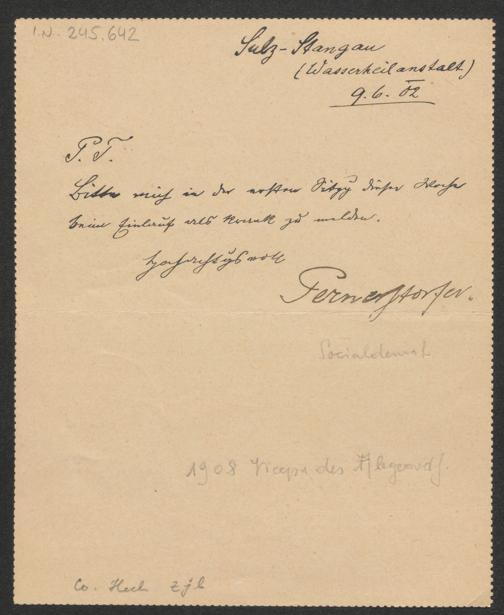 I.N. 245.642
Sulz-Stangau
(Wasserheilanstalt)
9.6.02
P.T.
Bitte mich in der ersten Sitzg dieser Woche
beim Einlauf als krank zu melden.
Hochachtungsvoll
Pernerstorfer.
Socialdemokrat
1908 Vicepr des Abgeordh.
Co.